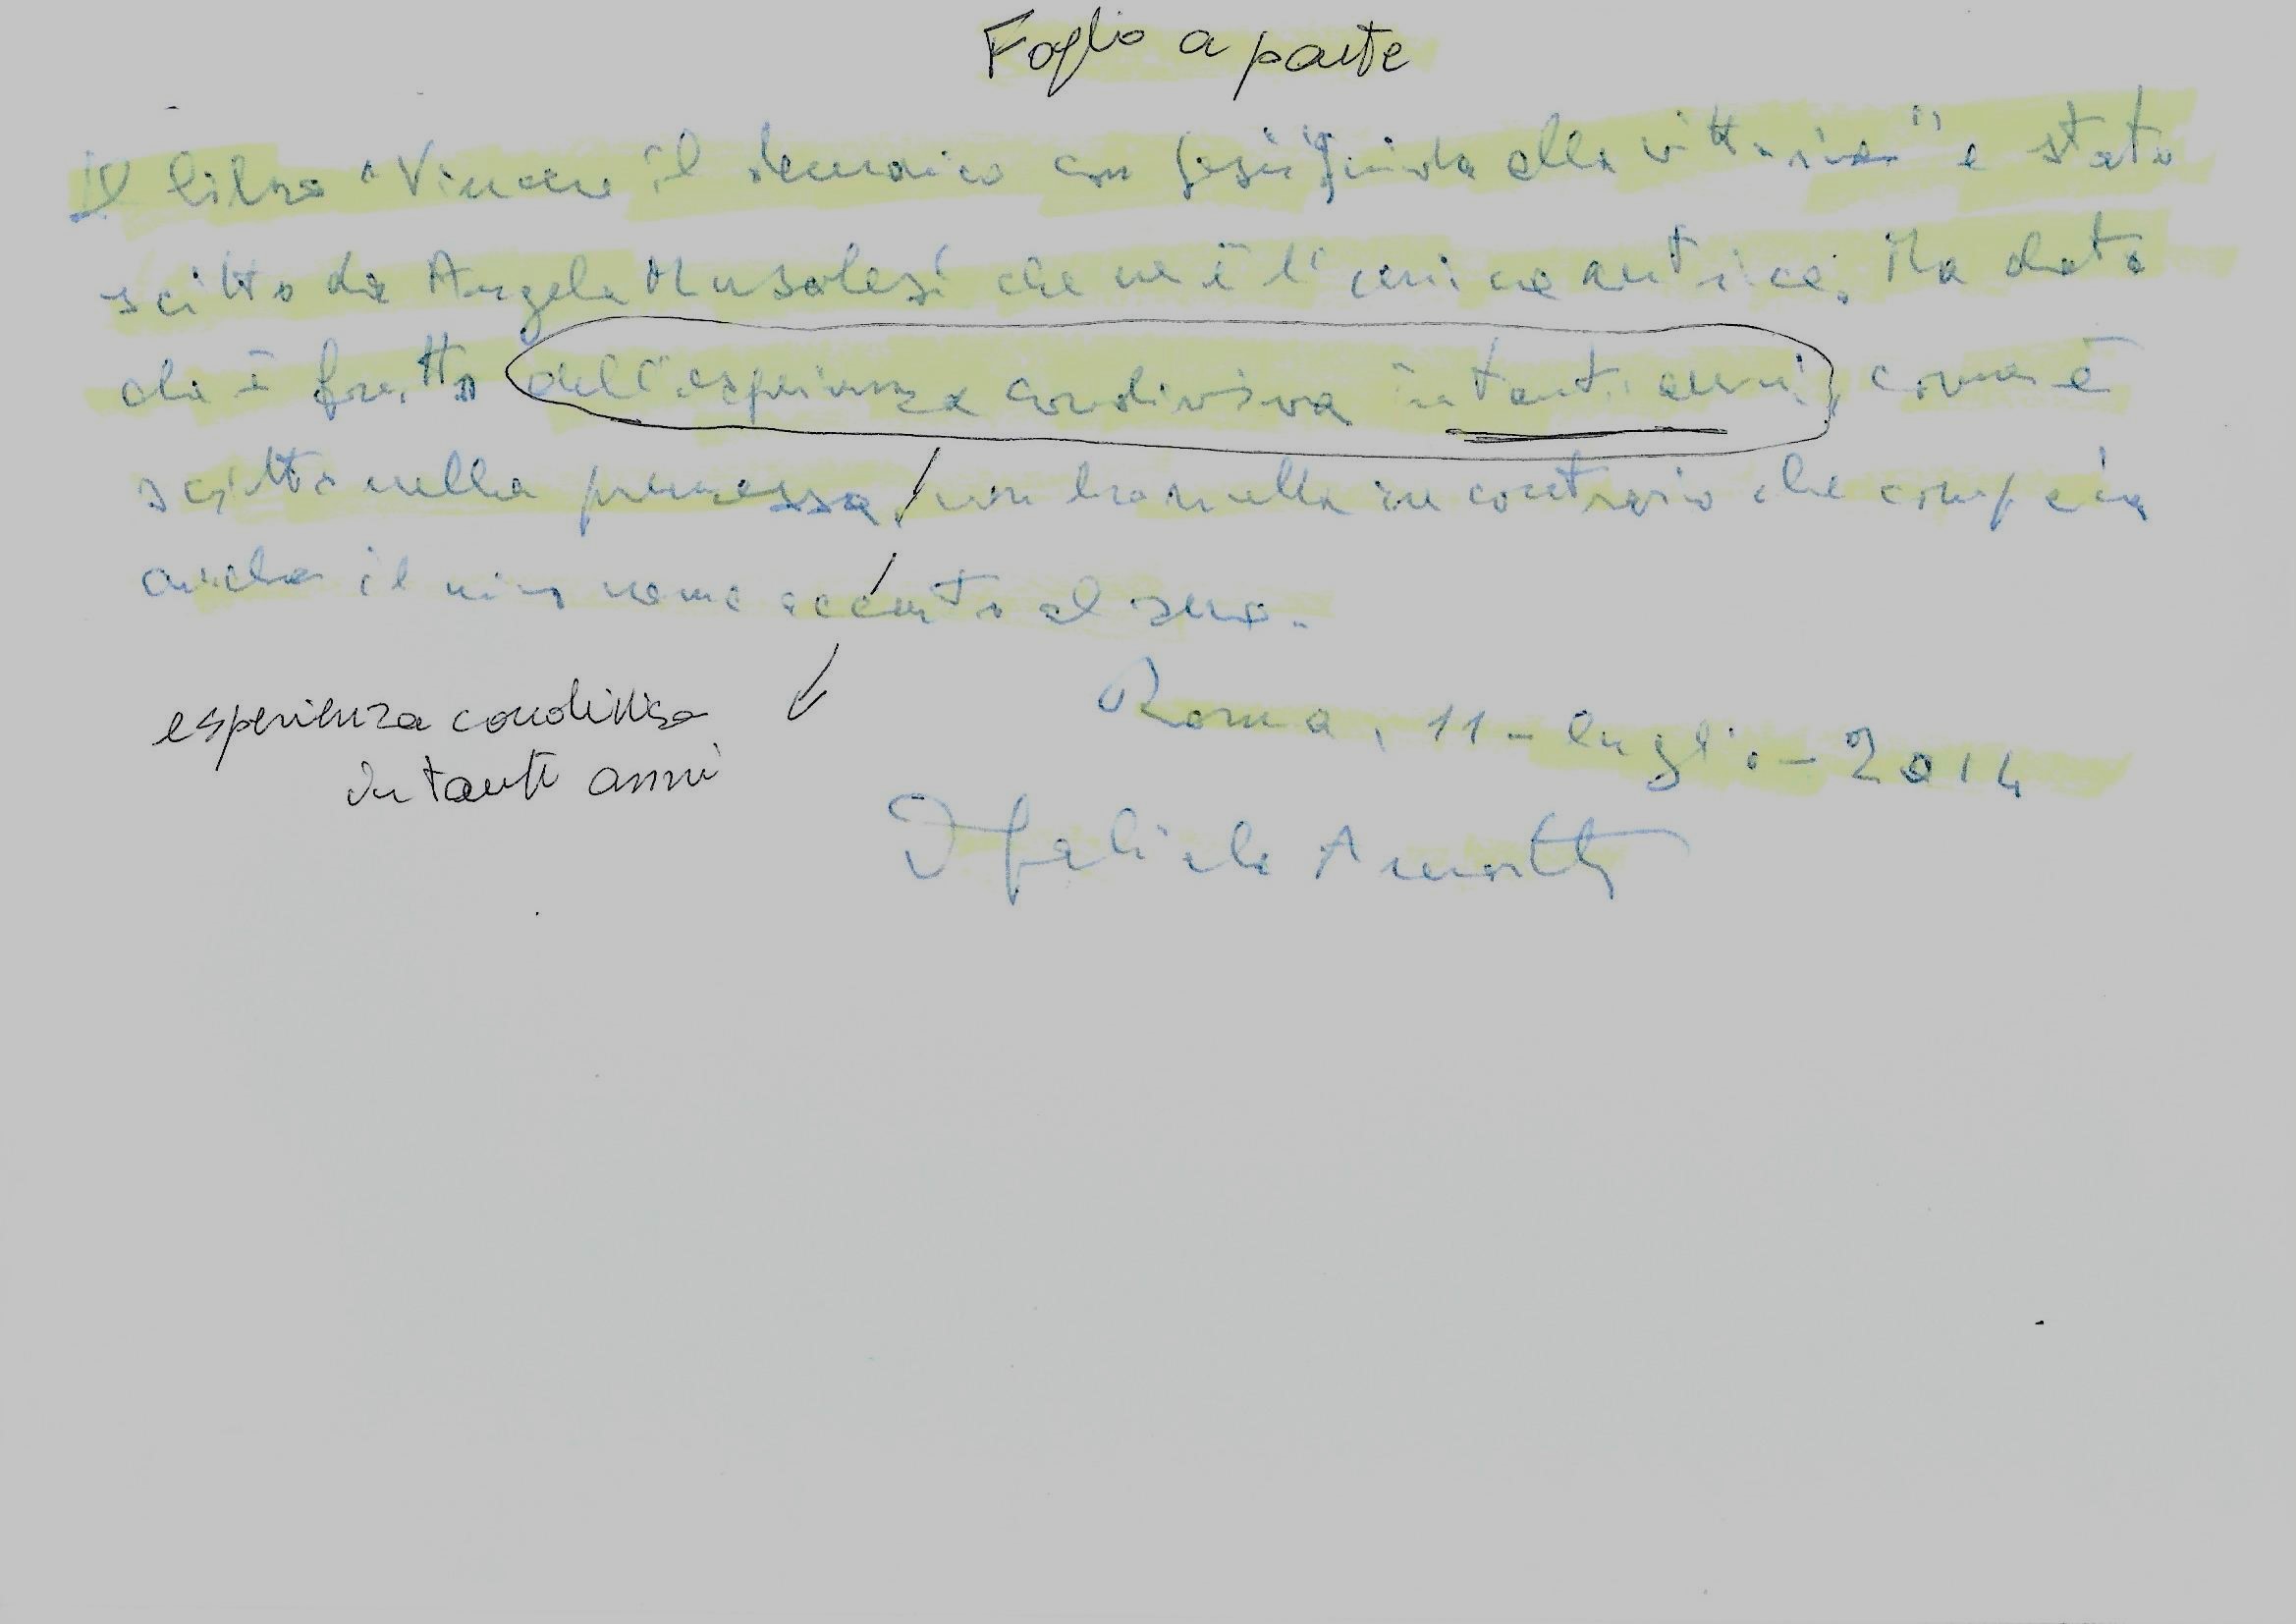 Foglio a parte
Il libro "Vincere il demonio con Gesù" "guida alla vittoria" è stato
scritto da Angela Musolesi che ne è l'unica autrice. Ma dato
che è frutto dell'esperienza condivisa in tanti anni, come è
scritto nella premessa, non ho nulla in contrario che compaia
anche il mio nome accanto al suo.
Roma, 11 - luglio - 2014
esperienza condivisa
in tanti anni
D Gabriele Amorth